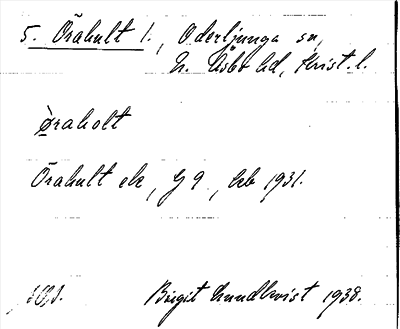 5. Örahult 1., Oderljunga sn,
N. Åsbo hd, Krist. l.
öraholt
Örahult ek, J 9, kb 1931.
Birgit Lundkvist 1938.